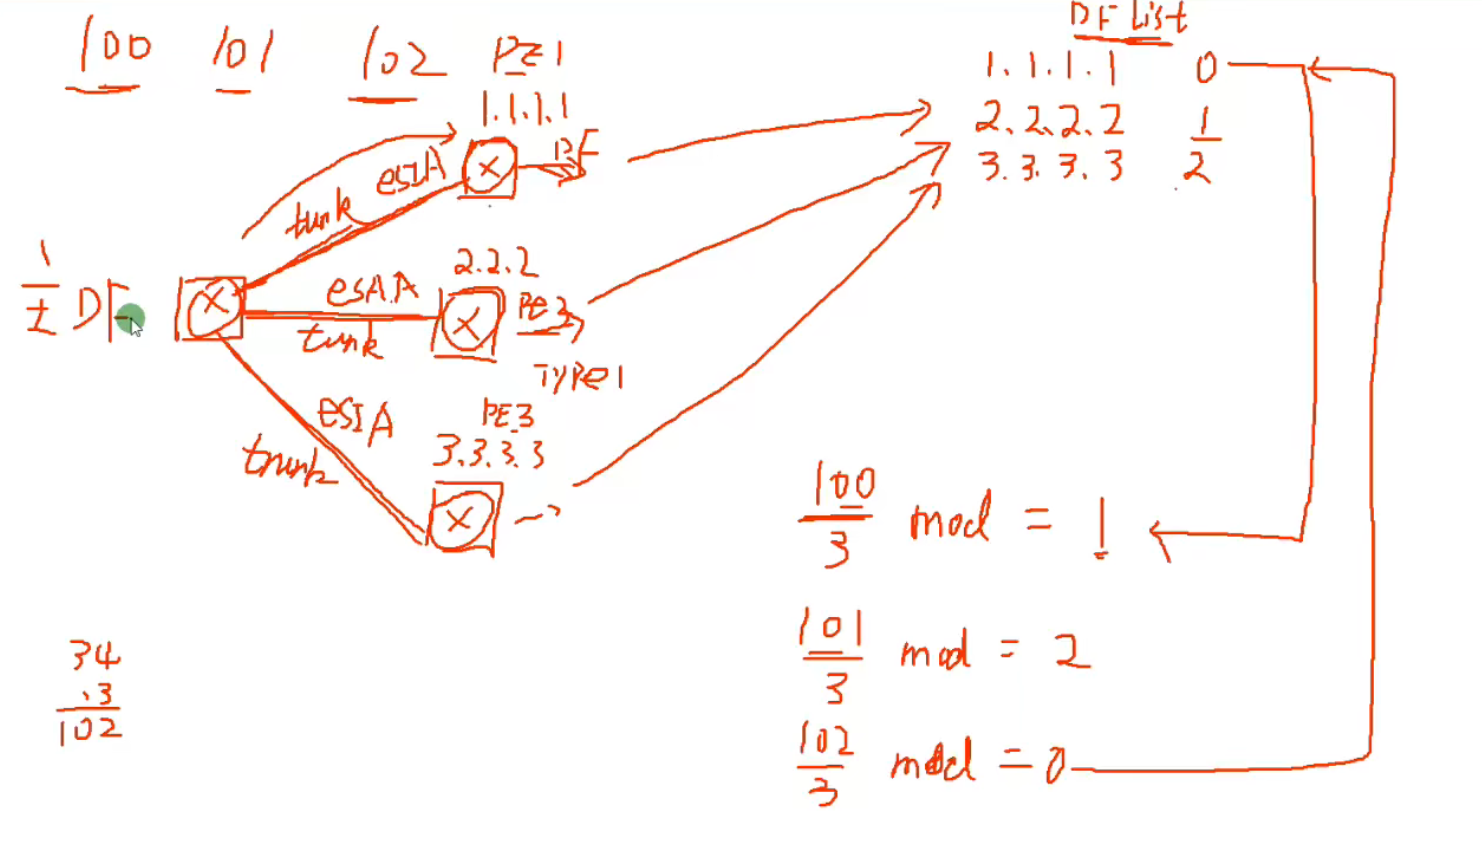 DF List
100 101 102 PE1
1.1.1.1
DF
esIA
trunk
1.1.1.1 0
2.2.2.2 1
3.3.3.3 2
DF
2.2.2
PE2
trunk
TYPe1
esIA
PE3
3.3.3.3
trunk
100
3
mod = 1
101
3
mod = 2
102
3
mod = 0
34
.3
102